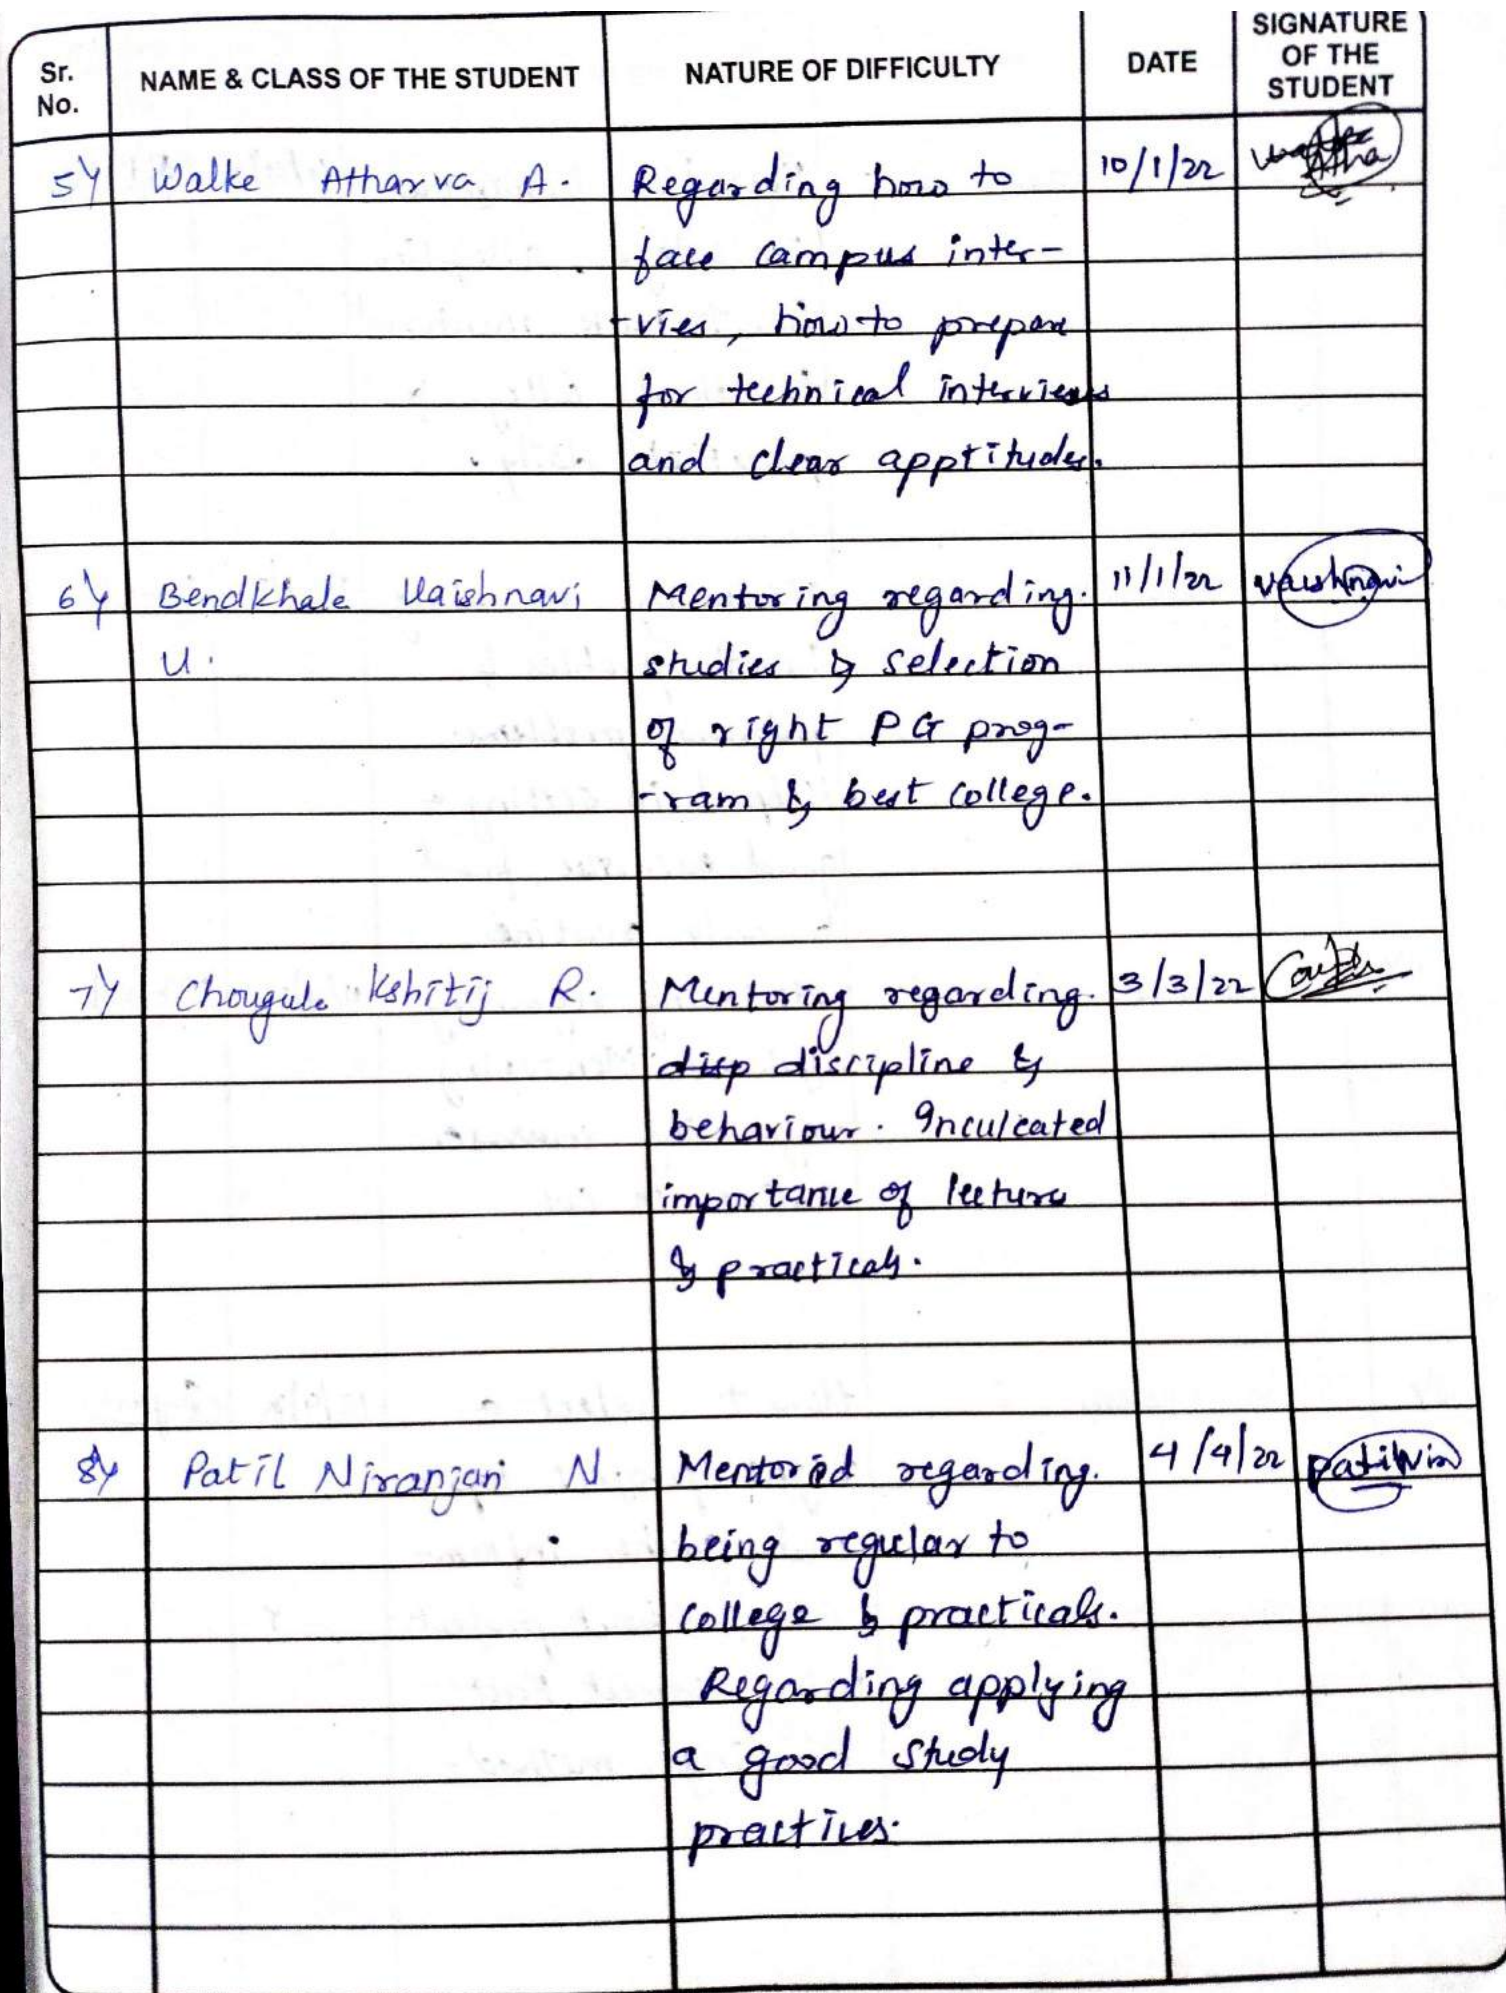 Sr. No.
NAME & CLASS OF THE STUDENT
NATURE OF DIFFICULTY
DATE
SIGNATURE OF THE STUDENT
5) Walke Atharva A. Regarding how to 10/1/22
face campus inter-
-vies, how to prepare
for technical interviews
and clear apptitudes.
6) Bendkhale Vaishnavi Mentoring regarding. 11/1/22 Vaishnavi
U. studies & selection
of right PG prog-
-ram & best college.
7) Chougule Kshitij R. Mentoring regarding. 3/3/22
disp discipline &
behaviour. Inculcated
importance of lecture
& practicals.
8) Patil Niranjan N. Mentored regarding. 4/4/22
being regular to
college & practicals.
Regarding applying
a good study
practices.